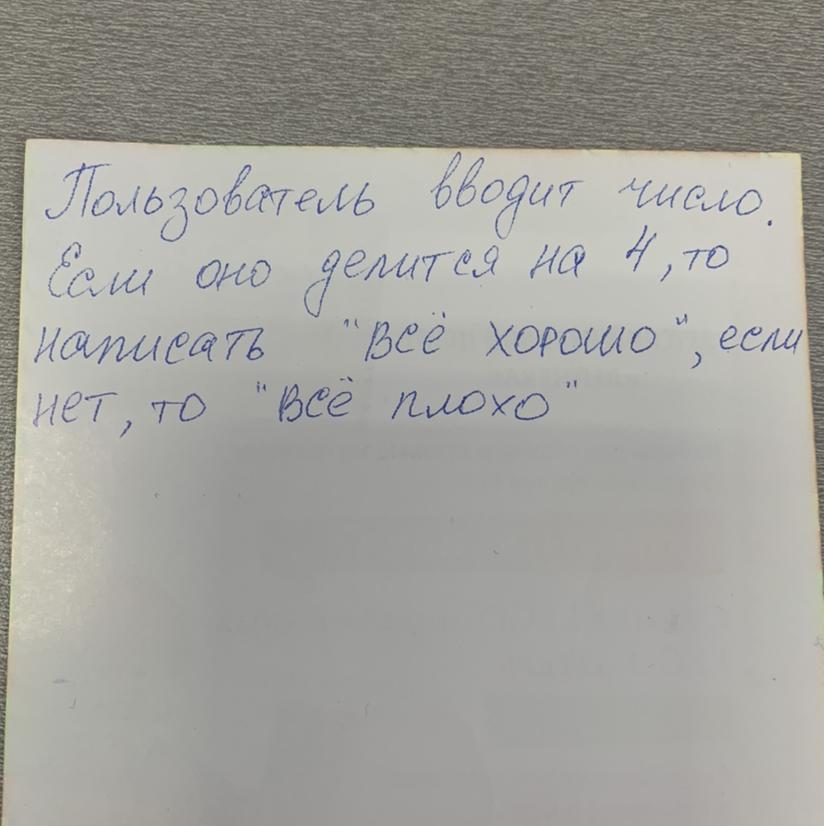 Пользователь вводит число.
Если оно делится на 4, то
написать "всё хорошо", если
нет, то "всё плохо"